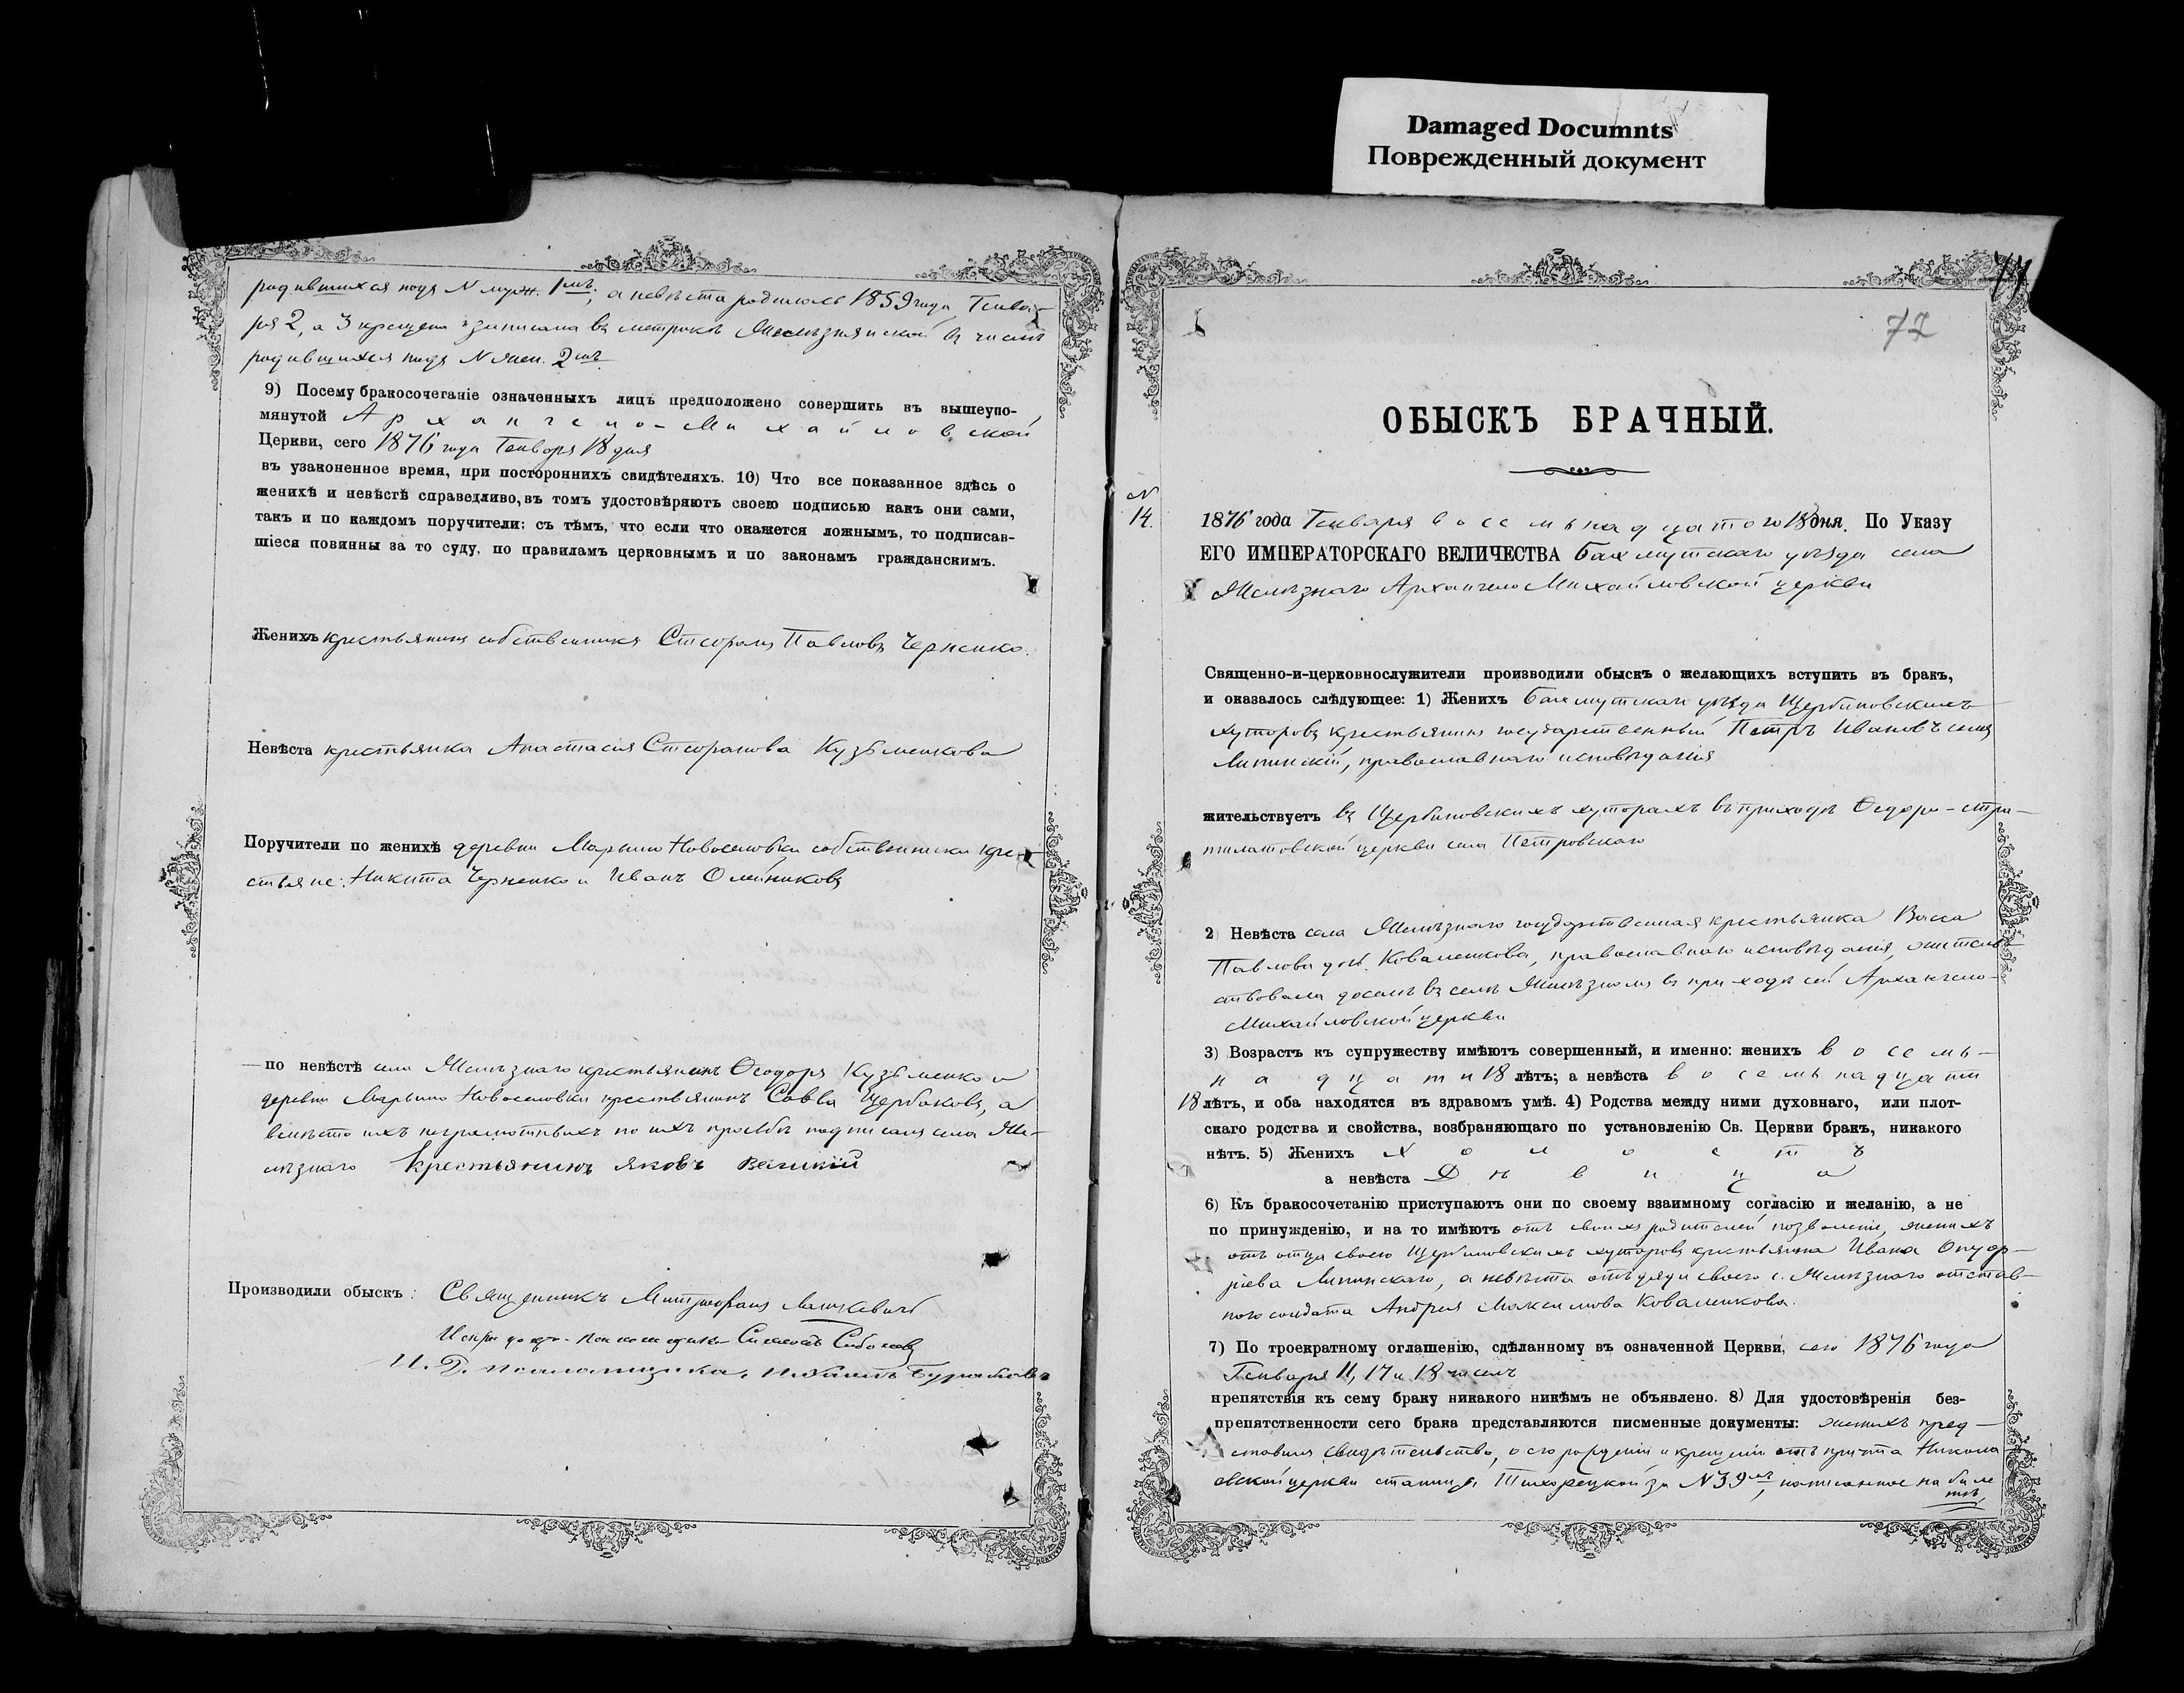 Damaged Documnts
Поврежденный документ
родившихся подъ N муж. 1мъ; а невѣста родилась 1859 года Генва-
ря 2, а 3 крещена и записана въ метрикѣ Желѣзнянской въ числѣ
родившихся подъ N жен. 2мъ.
9) Посему бракосочетаніе означенныхъ лицъ предположено совершить въ вышеупо-
мянутой Архангело-Михайловской
Церкви, сего 1876 года Генваря 18 дня
въ узаконенное время, при постороннихъ свидѣтеляхъ. 10) Что все показанное здѣсь о
женихѣ и невѣстѣ справедливо, въ томъ удостовѣряютъ своею подписью какъ они сами,
такъ и по каждомъ поручители; съ тѣмъ, что если что окажется ложнымъ, то подписав-
шіеся повинны за то суду, по правиламъ церковнымъ и по законамъ гражданскимъ.
Женихъ крестьянинъ собственникъ Стефанъ Павловъ Черненко.
Невѣста крестьянка Анастасія Стефанова Кузьменкова
Поручители по женихѣ деревни Марьино Новоселовки собственники кре-
стьяне: Никита Черненко и Иванъ Олейниковъ
по невѣстѣ села Желѣзнаго крестьянинъ Ѳеодоръ Кузьменко и
деревни Марьино Новоселовки крестьянинъ Савва Щербаковъ, а
вмѣсто ихъ неграмотныхъ по ихъ просьбѣ подписался села Же-
лѣзнаго крестьянинъ Яковъ Великій
Производили обыскъ: Священникъ Митрофанъ
Симеонъ
И. Д. псаломщика,
77
72
ОБЫСКЪ БРАЧНЫЙ.
N
14.
1876 года Генваря восемьнадцатого 18 дня. По Указу
ЕГО ИМПЕРАТОРСКАГО ВЕЛИЧЕСТВА Бахмутскаго уѣзда села
Желѣзнаго Архангело Михайловской церкви
Священно-и-церковнослужители производили обыскъ о желающихъ вступить въ бракъ,
и оказалось слѣдующее: 1) Женихъ Бахмутскаго уѣзда Щербиновскихъ
хуторовъ крестьянинъ государственный Петръ Ивановъ сынъ
Липинскій, православнаго исповѣданія
жительствуетъ въ Щербиновскихъ хуторахъ въ приходѣ Ѳедоро-стра-
тилатовской церкви села Петровскаго
2) Невѣста села Желѣзнаго государственная крестьянка Васса
Павлова дочь Коваленкова, православнаго исповѣданія, житель-
ствовала доселѣ въ селѣ Желѣзномъ въ приходѣ сей Архангело-
Михайловской церкви
3) Возрастъ къ супружеству имѣютъ совершенный, и именно: женихъ восемь-
надцати 18 лѣтъ; а невѣста восемьнадцати
18 лѣтъ, и оба находятся въ здравомъ умѣ. 4) Родства между ними духовнаго, или плот-
скаго родства и свойства, возбраняющаго по установленію Св. Церкви бракъ, никакого
нѣтъ. 5) Женихъ Холостъ
а невѣста Дѣвица
6) Къ бракосочетанію приступаютъ они по своему взаимному согласію и желанію, а не
по принужденію, и на то имѣютъ отъ своихъ родителей позволеніе, женихъ
отъ отца своего Щербиновскихъ хуторовъ крестьянина Ивана Онуф-
ріева Липинскаго, а невѣста отъ дяди своего с. Желѣзнаго отстав-
ного солдата Андрея Максимова Коваленкова.
7) По троекратному оглашенію, сдѣланному въ означенной Церкви, сего 1876 года
Генваря 11, 17 и 18 чиселъ
препятствія къ сему браку никакого никѣмъ не объявлено. 8) Для удостовѣренія без-
препятственности сего брака представляются писменные документы: женихъ пред-
ставилъ свидѣтельство, о его рожденіи и крещеніи отъ причта Никола
евской церкви станицы Тихорецкой за N 39мъ, написанное на биле
тѣ,